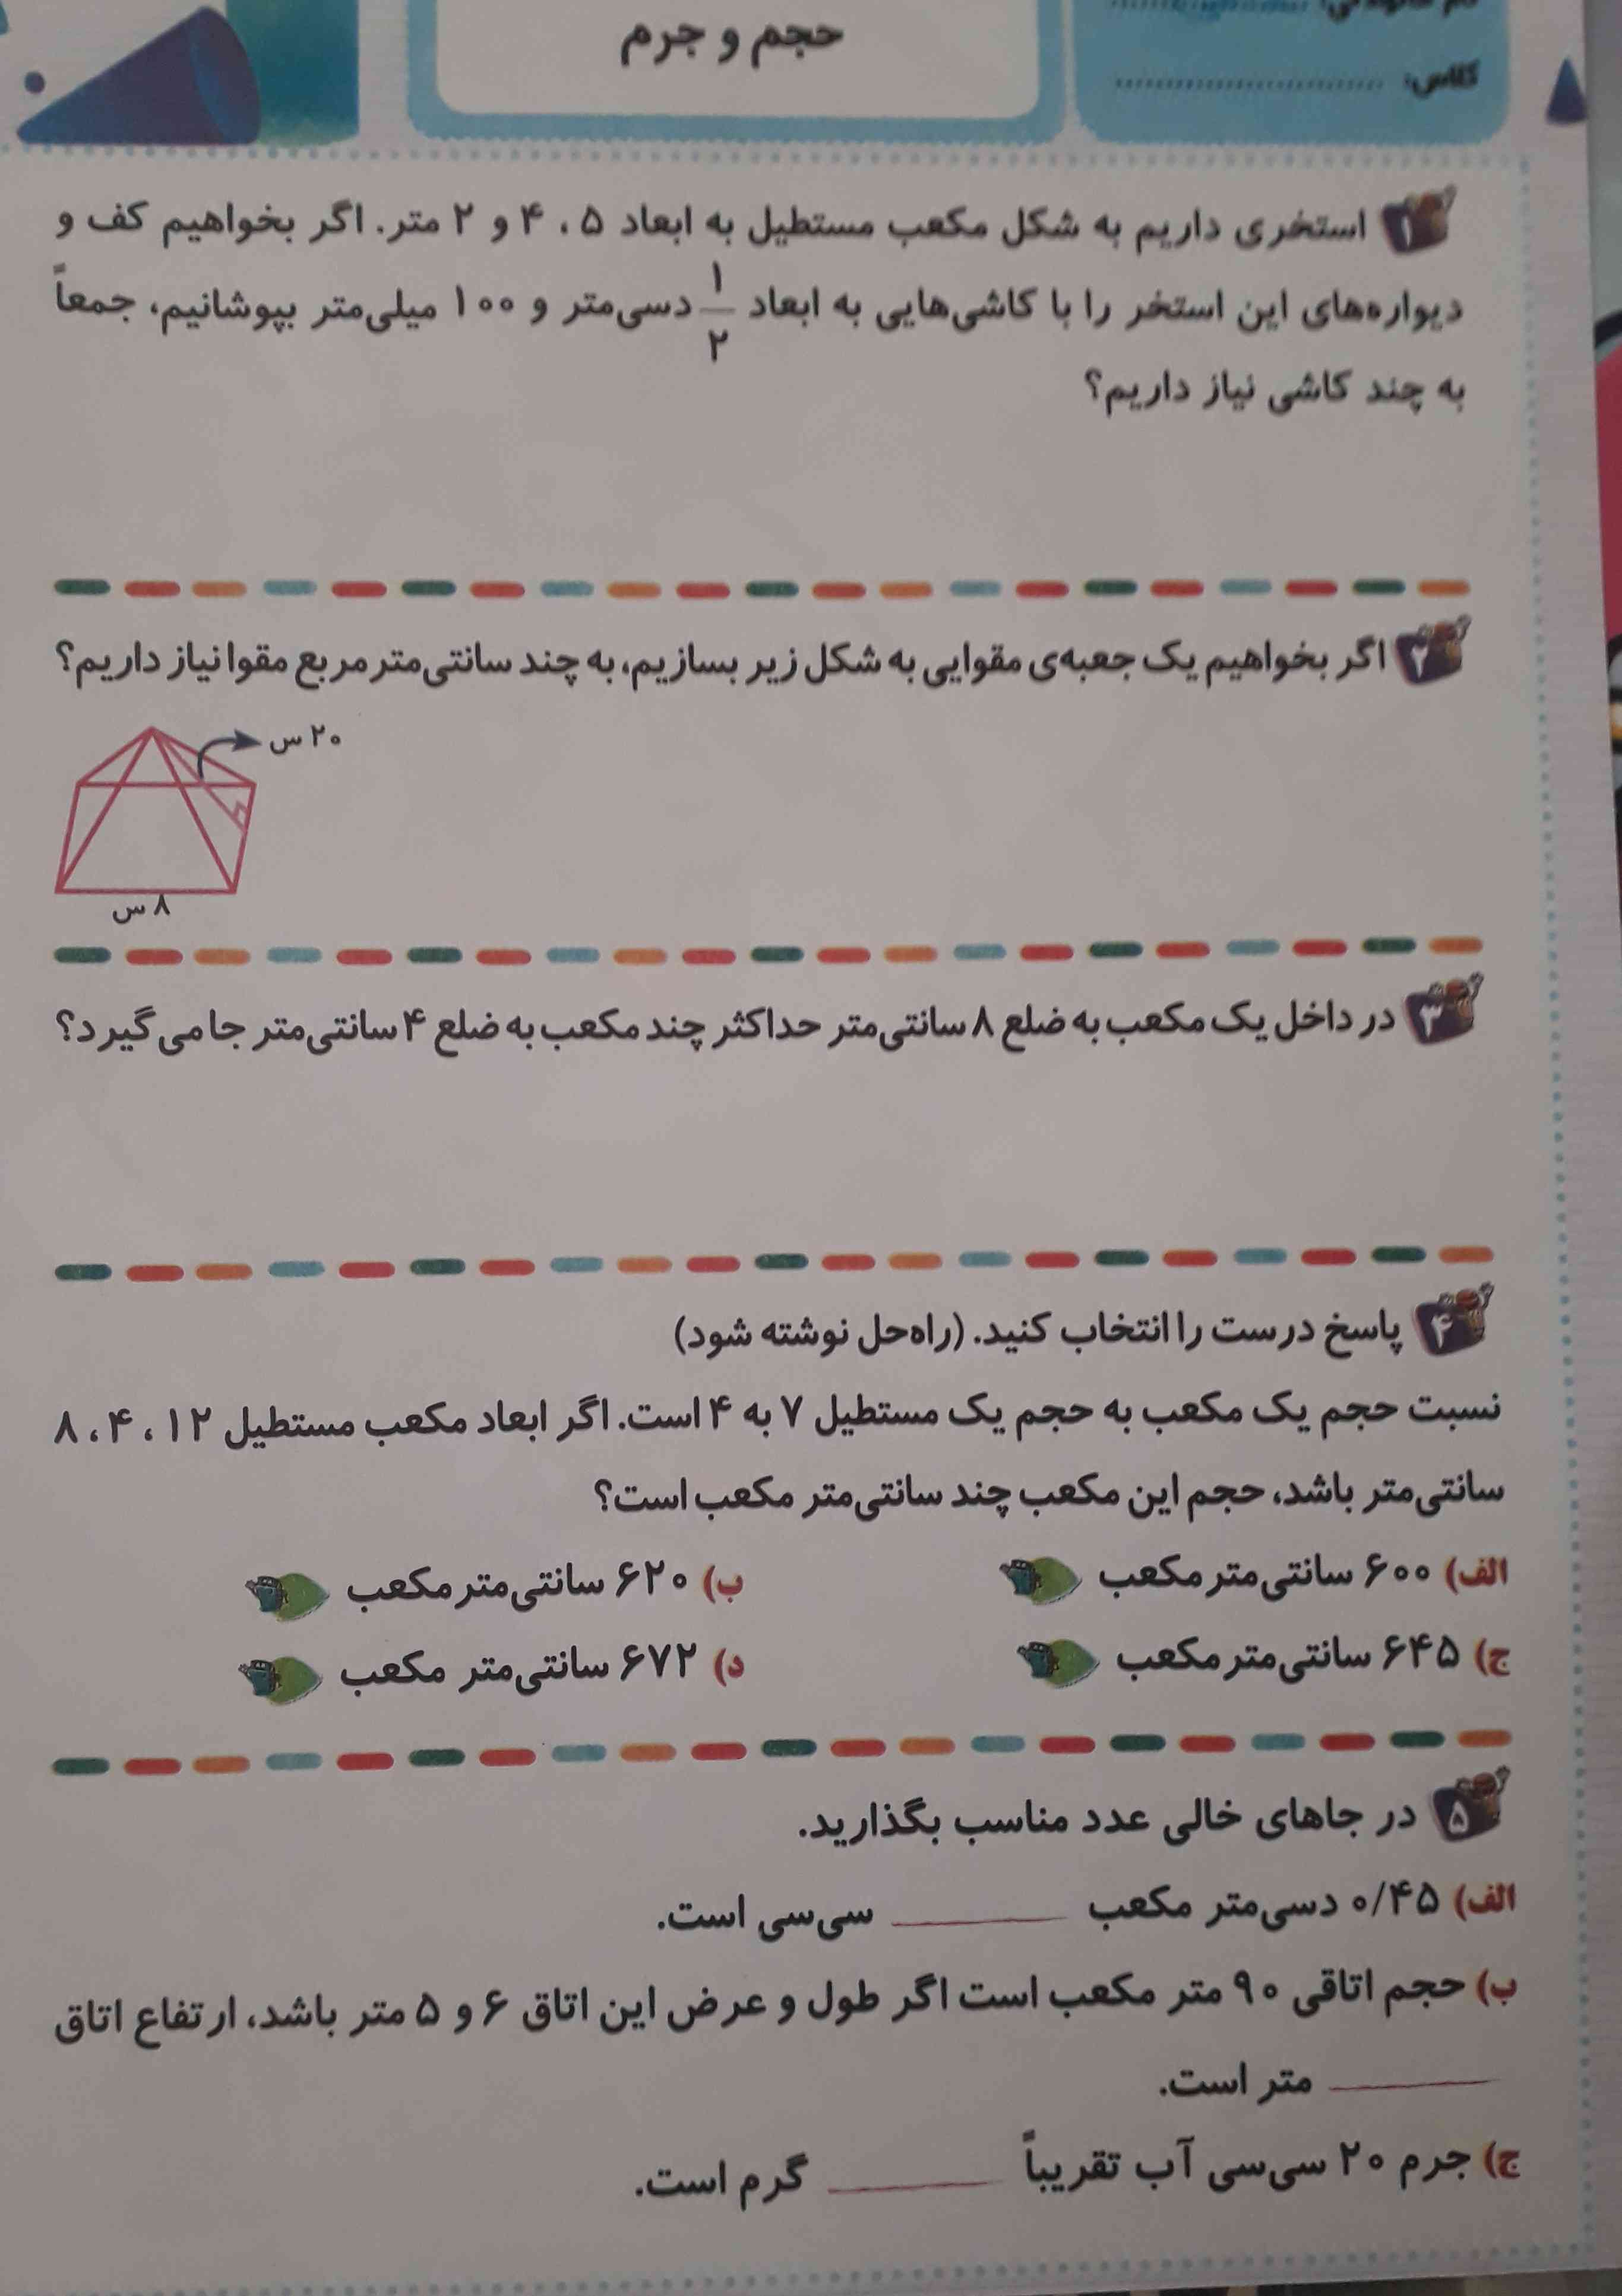 حجم و جرم
کلاس:
۱ استخری داریم به شکل مکعب مستطیل به ابعاد ۵ ، ۴ و ۲ متر. اگر بخواهیم کف و
دیواره‌های این استخر را با کاشی‌هایی به ابعاد ۱/۲ دسی‌متر و ۱۰۰ میلی‌متر بپوشانیم، جمعاً
به چند کاشی نیاز داریم؟
۲ اگر بخواهیم یک جعبه‌ی مقوایی به شکل زیر بسازیم، به چند سانتی‌متر مربع مقوا نیاز داریم؟
۲۰ س
۸ س
۳ در داخل یک مکعب به ضلع ۸ سانتی‌متر حداکثر چند مکعب به ضلع ۴ سانتی‌متر جا می‌گیرد؟
۴ پاسخ درست را انتخاب کنید. (راه‌حل نوشته شود)
نسبت حجم یک مکعب به حجم یک مستطیل ۷ به ۴ است. اگر ابعاد مکعب مستطیل ۱۲ ، ۴ ، ۸
سانتی‌متر باشد، حجم این مکعب چند سانتی‌متر مکعب است؟
الف) ۶۰۰ سانتی‌متر مکعب ب) ۶۲۰ سانتی‌متر مکعب
ج) ۶۴۵ سانتی‌متر مکعب د) ۶۷۲ سانتی‌متر مکعب
۵ در جاهای خالی عدد مناسب بگذارید.
الف) ۰/۴۵ دسی‌متر مکعب ______ سی‌سی است.
ب) حجم اتاقی ۹۰ متر مکعب است اگر طول و عرض این اتاق ۶ و ۵ متر باشد، ارتفاع اتاق
______ متر است.
ج) جرم ۲۰ سی‌سی آب تقریباً ______ گرم است.